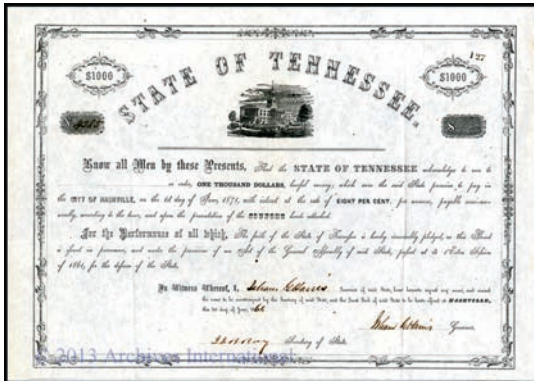 127
$1000 $1000
STATE OF TENNESSEE.
Know all Men by these Presents, That the STATE OF TENNESSEE acknowledges to owe to
or order, ONE THOUSAND DOLLARS, lawful money, which sum the said State promises to pay in
the CITY OF NASHVILLE, on the 1st day of 1871, with interest at the rate of EIGHT PER CENT. per annum, payable semi-
annually, according to the and upon the presentation of the COUPONS hereto attached.
For the Performance of all which, The faith of the State of Tennessee is hereby irrevocably pledged, as this Bond
is issued in pursuance, and under the provisions of an Act of the General Assembly of said State, passed at its Extra Session
of 1861, for the defence of the State.
In Witness Whereof, I, Isham G Harris Governor of said State, have hereunto signed my name, and caused
the same to be countersigned by the Secretary of said State, and the Great Seal of said State to be hereto affixed at NASHVILLE,
the 1st day of 186
Isham G Harris Governor.
Secretary of State
© 2013 Archives International